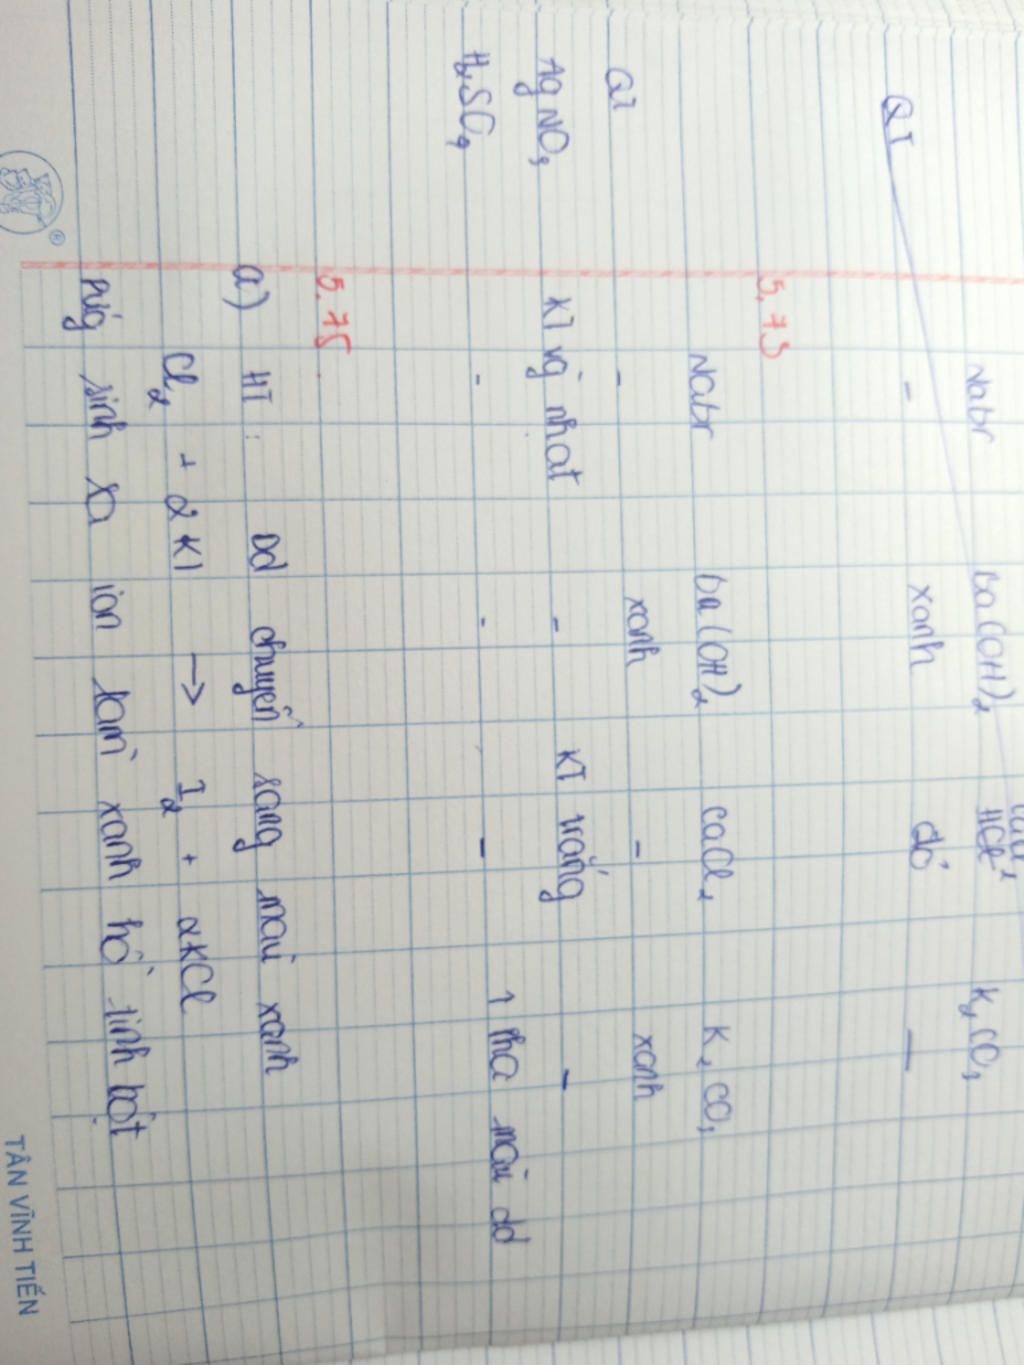 Nabr ba(OH)₂ HCl K₂CO₃
QT - xanh đỏ —
5.73
Nabr ba(OH)₂ CaCl₂ K₂CO₃
QT - xanh - xanh
AgNO₃ KT vàg nhạt - KT trắng -
H₂SO₄ - - - ↑ mà màu dd
5.75.
a) HT: Dd chuyển sang màu xanh
Cl₂ + 2KI → I₂ + 2KCl
Pứg sinh ra ion làm xanh hồ tinh bột
®
TÂN VĨNH TIẾN